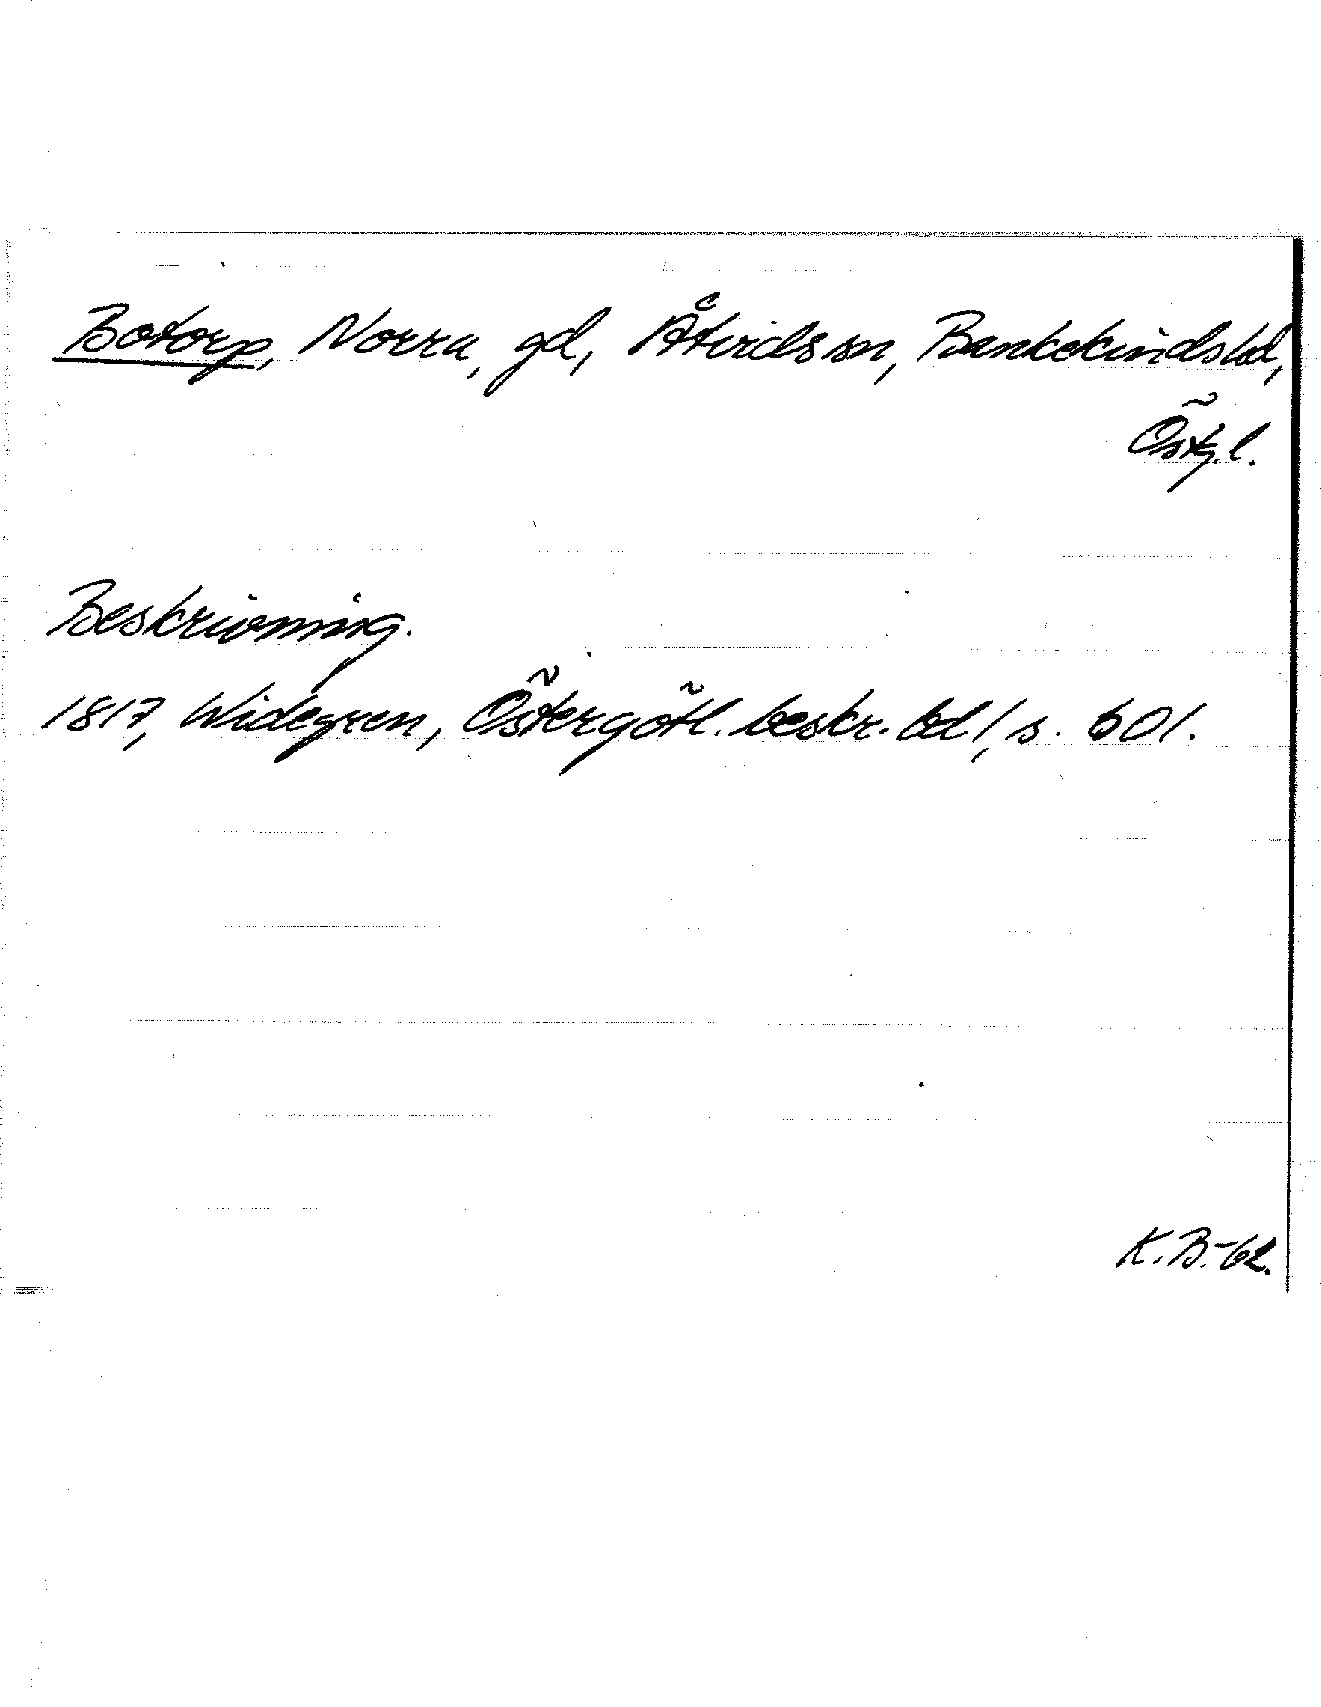 Botorp, Norra, gd, Åtvids sn, Bankekindshd,
Östg.l.
Beskrivning.
1817, Widegren, Östergötl. beskr. bd 1, s. 601.
K.B.-62.